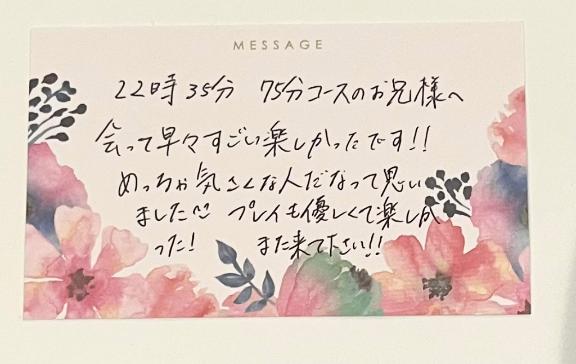 MESSAGE
22時35分 75分コースのお兄様へ
会って早々すごい楽しかったです!!
めっちゃ気さくな人だなって思い
ました プレイも優しくて楽しか
った! また来て下さい!!